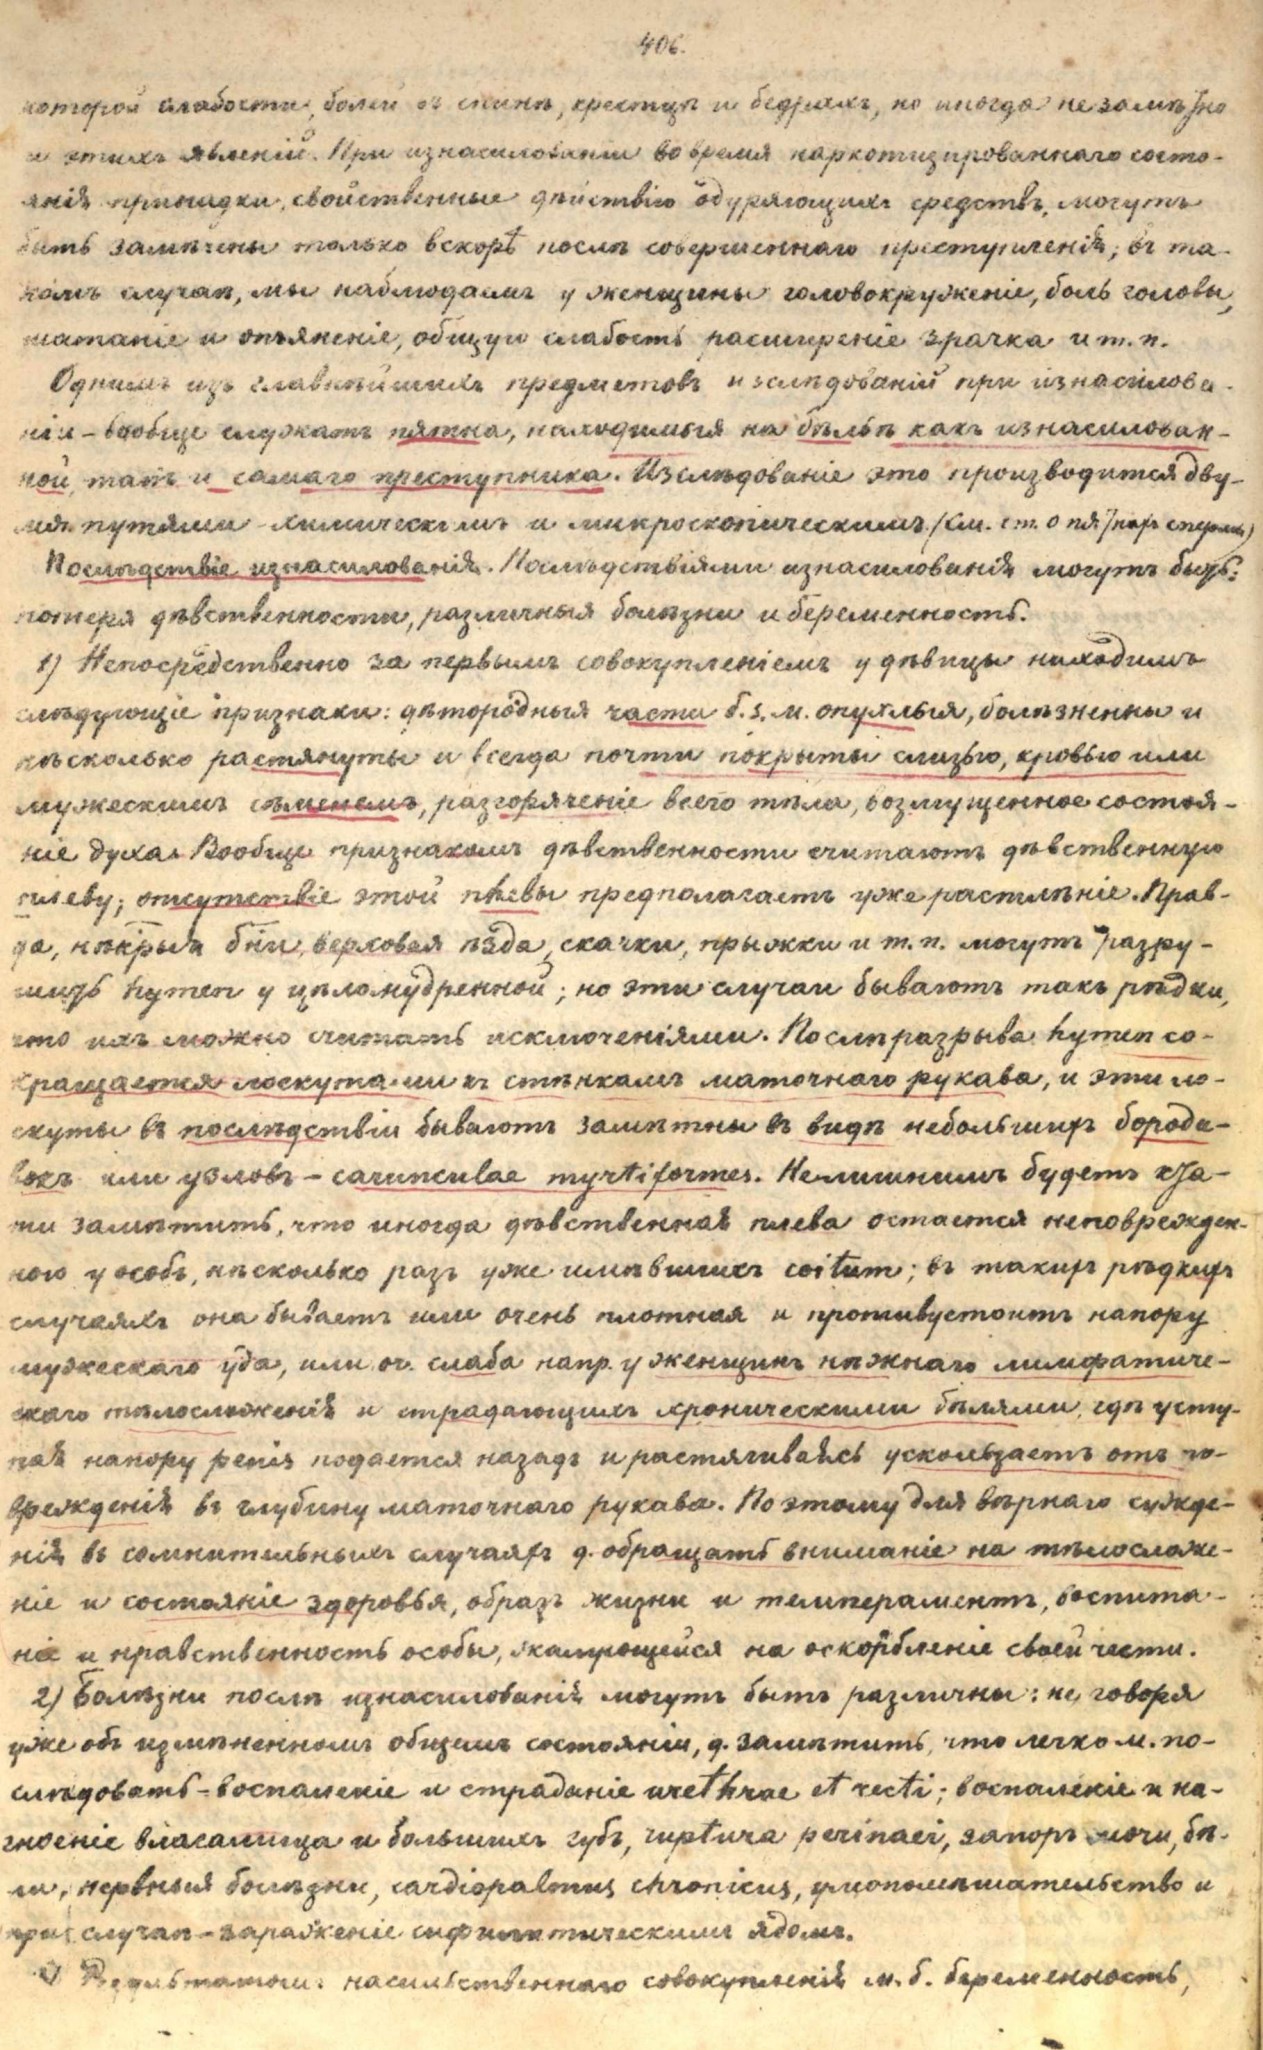 406.
которой слабости, болей въ спинѣ, крестцѣ и бедрахъ, но иногда не замѣтно
и этихъ явленій. При изнасилованіи во время наркотизированнаго состо-
янія припадки, свойственные дѣйствію одуряющихъ средствъ, могутъ
быть замѣчены только вскорѣ послѣ совершеннаго преступленія; въ та-
комъ случаѣ, мы наблюдаемъ у женщины головокруженіе, боль головы,
шатаніе и опьяненіе, общую слабость расширеніе зрачка и т. п.
Однимъ изъ главнѣйшихъ предметовъ изслѣдованій при изнасилова-
ніи – вообще служатъ пятна, находимыя на бѣльѣ какъ изнасилован-
ной, такъ и самаго преступника. Изслѣдованіе это производится дву-
мя путями – химическимъ и микроскопическимъ. (См. ст. о пятнахъ спермы)
Послѣдствіе изнасилованія. Послѣдствіями изнасилованія могутъ быть:
потеря дѣвственности, различныя болѣзни и беременность.
1) Непосредственно за первымъ совокупленіемъ у дѣвицы находимъ
слѣдующіе признаки: дѣтородныя части б. ч. м. опухлыя, болѣзненны и
нѣсколько растянуты и всегда почти покрыты слизью, кровью или
мужескимъ сѣменемъ, разгоряченіе всего тѣла, возмущенное состоя-
ніе духа. Вообще признакомъ дѣвственности считаютъ дѣвственную
плеву; отсутствіе этой плевы предполагаетъ уже растлѣніе. Прав-
да, нѣкрыя б̅ни, верховая ѣзда, скачки, прыжки и т. п. могутъ разру-
шить hymen у цѣломудренной; но эти случаи бываютъ такъ рѣдки,
что ихъ можно считать исключеніями. Послѣ разрыва hymen со-
кращается лоскутами къ стѣнкамъ маточнаго рукава, и эти ло-
скуты въ послѣдствіи бываютъ замѣтны въ видѣ небольшихъ борода-
вокъ или узловъ – carunculae myrtiformes. Нелишнимъ будетъ кста-
ти замѣтить, что иногда дѣвственная плева остается неповрежден-
ною у особъ, нѣсколько разъ уже имѣвшихъ coitum; въ такихъ рѣдкихъ
случаяхъ она бываетъ или очень плотная и противустоитъ напору
мужескаго уда, или оч. слаба напр. у женщинъ нѣжнаго лимфатиче-
скаго тѣлосложенія и страдающихъ хроническими бѣлями, гдѣ усту-
пая напору penis подается назадъ и растягиваясь ускользаетъ отъ по-
врежденія въ глубину маточнаго рукава. Поэтому для вѣрнаго сужде-
нія въ сомнительныхъ случаяхъ д. обращать вниманіе на тѣлосложе-
ніе и состояніе здоровья, образъ жизни и темпераментъ, воспита-
ніе и нравственность особы, жалующейся на оскорбленіе своей чести.
2) Болѣзни послѣ изнасилованія могутъ быть различны: не говоря
уже объ измѣненномъ общемъ состояніи, д. замѣтить, что легко м. по-
слѣдовать – воспаленіе и страданіе urethrae et recti; воспаленіе и на-
гноеніе влагалища и большихъ губъ, ruptura perinaei, запоръ мочи, бѣ-
ли, нервныя болѣзни, cardiopalmus chronicus, умопомѣшательство и
при случаѣ – зараженіе сифилитическимъ ядомъ.
3) Результатомъ насильственнаго совокупленія м. б. беременность,